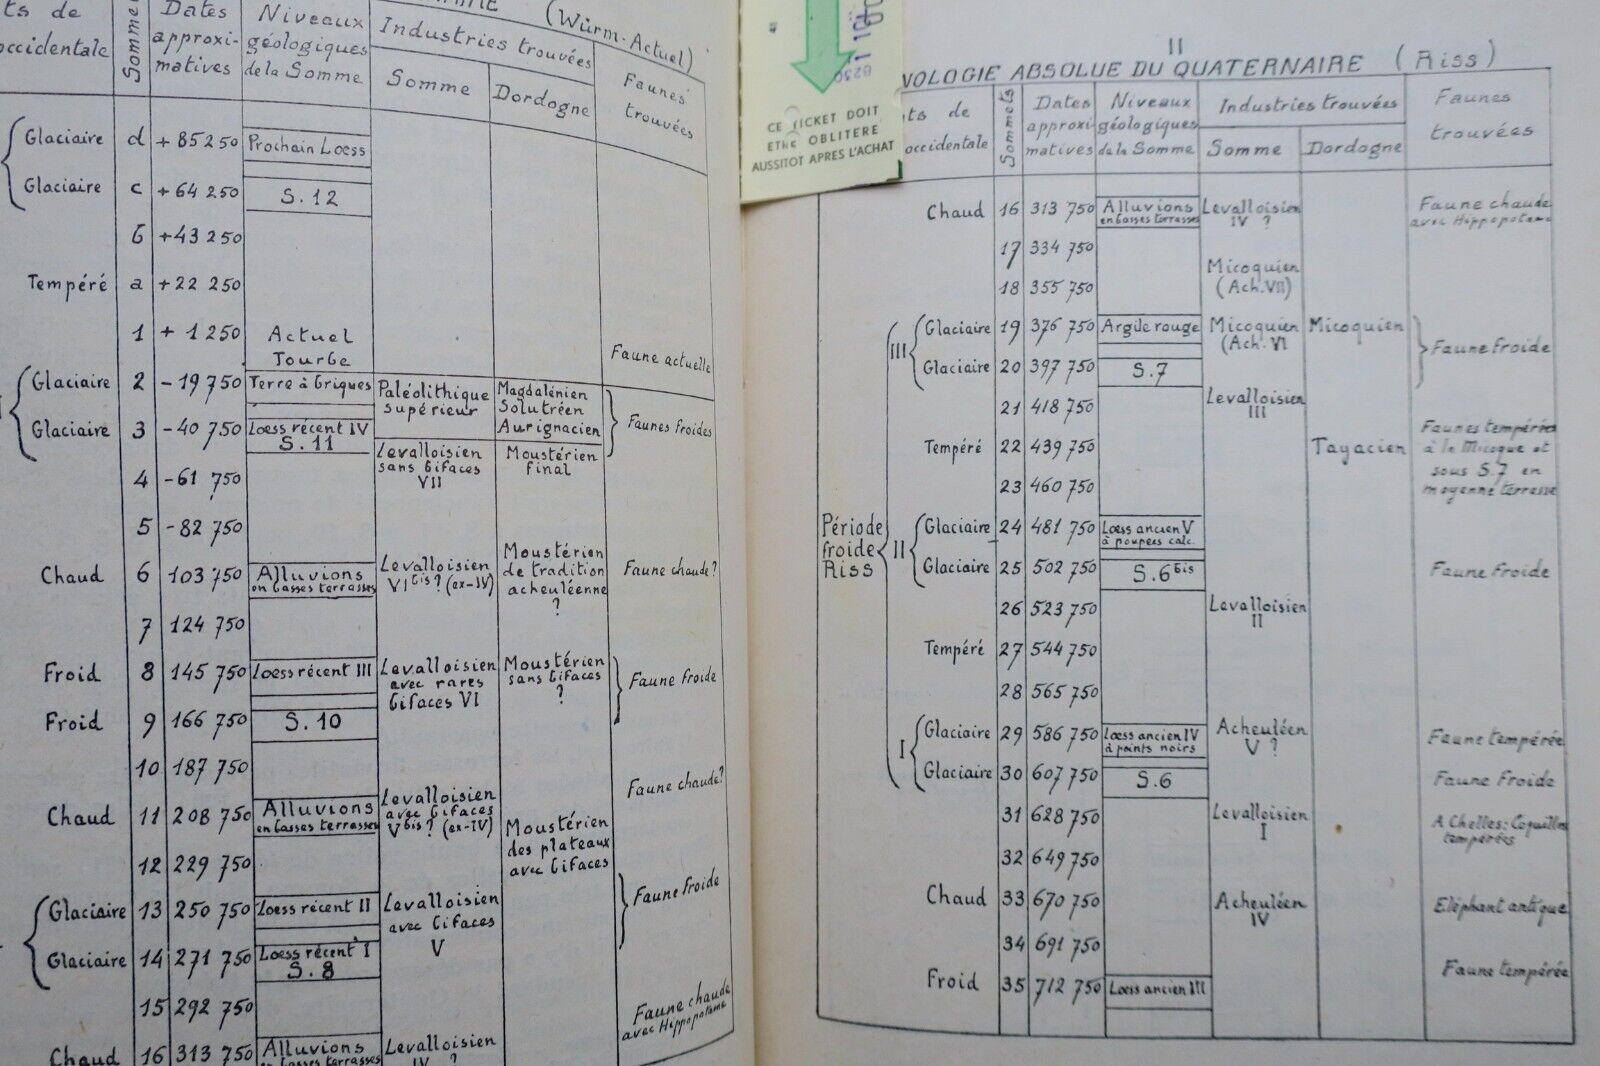 (Würm-Actuel)
ts de
occidentale
Dates
approxi-
matives
Niveaux
géologiques
de la Somme
Industries trouvées
Somme
Dordogne
Faunes
trouvées
Glaciaire d + 85 250 Prochain Loess
Glaciaire c + 64 250 S. 12
b + 43 250
Tempéré a + 22 250
1 + 1 250 Actuel
Tourbe
Faune actuelle
Glaciaire 2 - 19 750 Terre à briques Paléolithique Magdalénien
supérieur Solutréen
Glaciaire 3 - 40 750 Loess récent IV Aurignacien Faunes froides
S. 11 Levalloisien Moustérien
sans bifaces final
VII
4 - 61 750
5 - 82 750
Chaud 6 103 750 Alluvions Levalloisien Moustérien Faune chaude?
en basses terrasses VI bis? (ex-IV) de tradition
acheuléenne
?
7 124 750
Froid 8 145 750 Loess récent III Levalloisien Moustérien Faune froide
avec rares sans bifaces
bifaces VI ?
Froid 9 166 750 S. 10
10 187 750 Faune chaude?
Chaud 11 208 750 Alluvions Levalloisien
en basses terrasses avec bifaces
V bis? (ex-IV) Moustérien
des plateaux
avec bifaces
12 229 750
Glaciaire 13 250 750 Loess récent II Levalloisien Faune froide
avec bifaces
V
Glaciaire 14 271 750 Loess récent I
S. 8
15 292 750 Faune chaude
avec Hippopotame
Chaud 16 313 750 Alluvions Levalloisien
en basses terrasses IV ?
CE TICKET DOIT
ETRE OBLITERE
AUSSITOT APRES L'ACHAT
II
NOLOGIE ABSOLUE DU QUATERNAIRE (Riss)
ts de
occidentale
Sommets
Dates
approxi-
matives
Niveaux
géologiques
de la Somme
Industries trouvées
Somme
Dordogne
Faunes
trouvées
Chaud 16 313 750 Alluvions Levalloisien Faune chaude
en basses terrasses IV ? avec Hippopotame
17 334 750
18 355 750 Micoquien
(Ach. VII)
III Glaciaire 19 376 750 Argile rouge Micoquien Micoquien Faune froide
(Ach. VI
Glaciaire 20 397 750 S. 7
21 418 750 Levalloisien
III
Tempéré 22 439 750 Tayacien Faunes tempérées
à la Micoque et
sous S. 7 en
moyenne terrasse
23 460 750
Période
froide
Riss
II Glaciaire 24 481 750 Loess ancien V
à poupées calc.
Glaciaire 25 502 750 S. 6 bis Faune froide
26 523 750 Levalloisien
II
Tempéré 27 544 750
28 565 750
I Glaciaire 29 586 750 Loess ancien IV Acheuléen Faune tempérée
à points noirs V ?
Glaciaire 30 607 750 S. 6 Faune froide
31 628 750 Levalloisien A Chelles: Coquilles
I tempérées
32 649 750
Chaud 33 670 750 Acheuléen Eléphant antique
IV
34 691 750 Faune tempérée
Froid 35 712 750 Loess ancien III